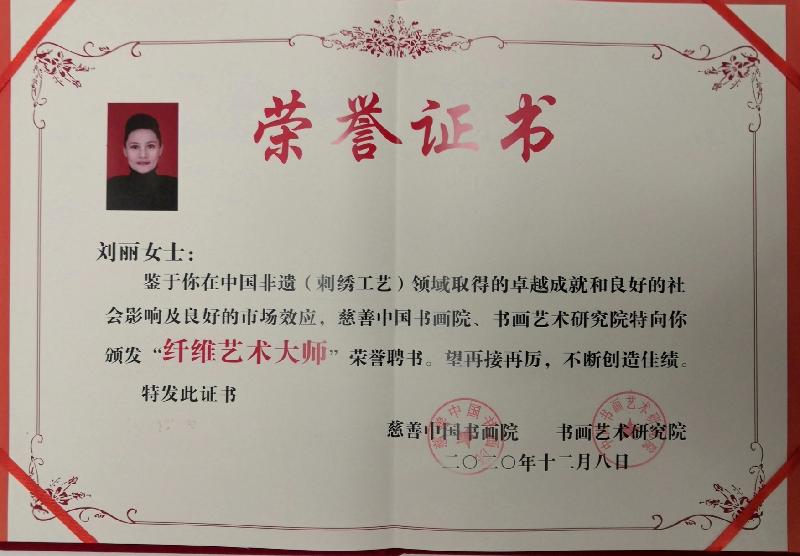 荣誉证书
刘丽女士：
鉴于你在中国非遗（刺绣工艺）领域取得的卓越成就和良好的社
会影响及良好的市场效应，慈善中国书画院、书画艺术研究院特向你
颁发“纤维艺术大师”荣誉聘书。望再接再厉，不断创造佳绩。
特发此证书
慈善中国书画院 书画艺术研究院
二〇二〇年十二月八日